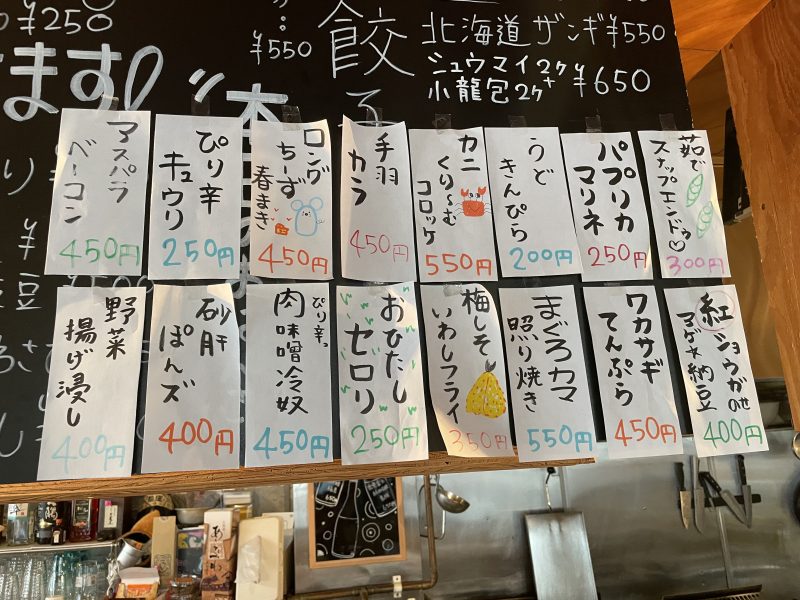 ¥250
¥550
餃子
北海道ザンギ¥550
シュウマイ2ケ
小龍包2ケ
¥650
ます!
茹で
スナップエンドゥ♡
300円
パプリカ
マリネ
250円
うど
きんぴら
200円
カニ
くり〜む
コロッケ
550円
手羽
カラ
450円
ロング
ちーず
春まき
450円
ぴり辛
キュウリ
250円
アスパラ
ベーコン
450円
紅ショウガのせ
アゲ☆納豆
400円
ワカサギ
てんぷら
450円
まぐろカマ
照り焼き
550円
梅しそ
いわしフライ
350円
おひたし
セロリ
250円
ぴり辛っ
肉味噌冷奴
450円
砂肝
ぽんズ
400円
野菜
揚げ浸し
400円